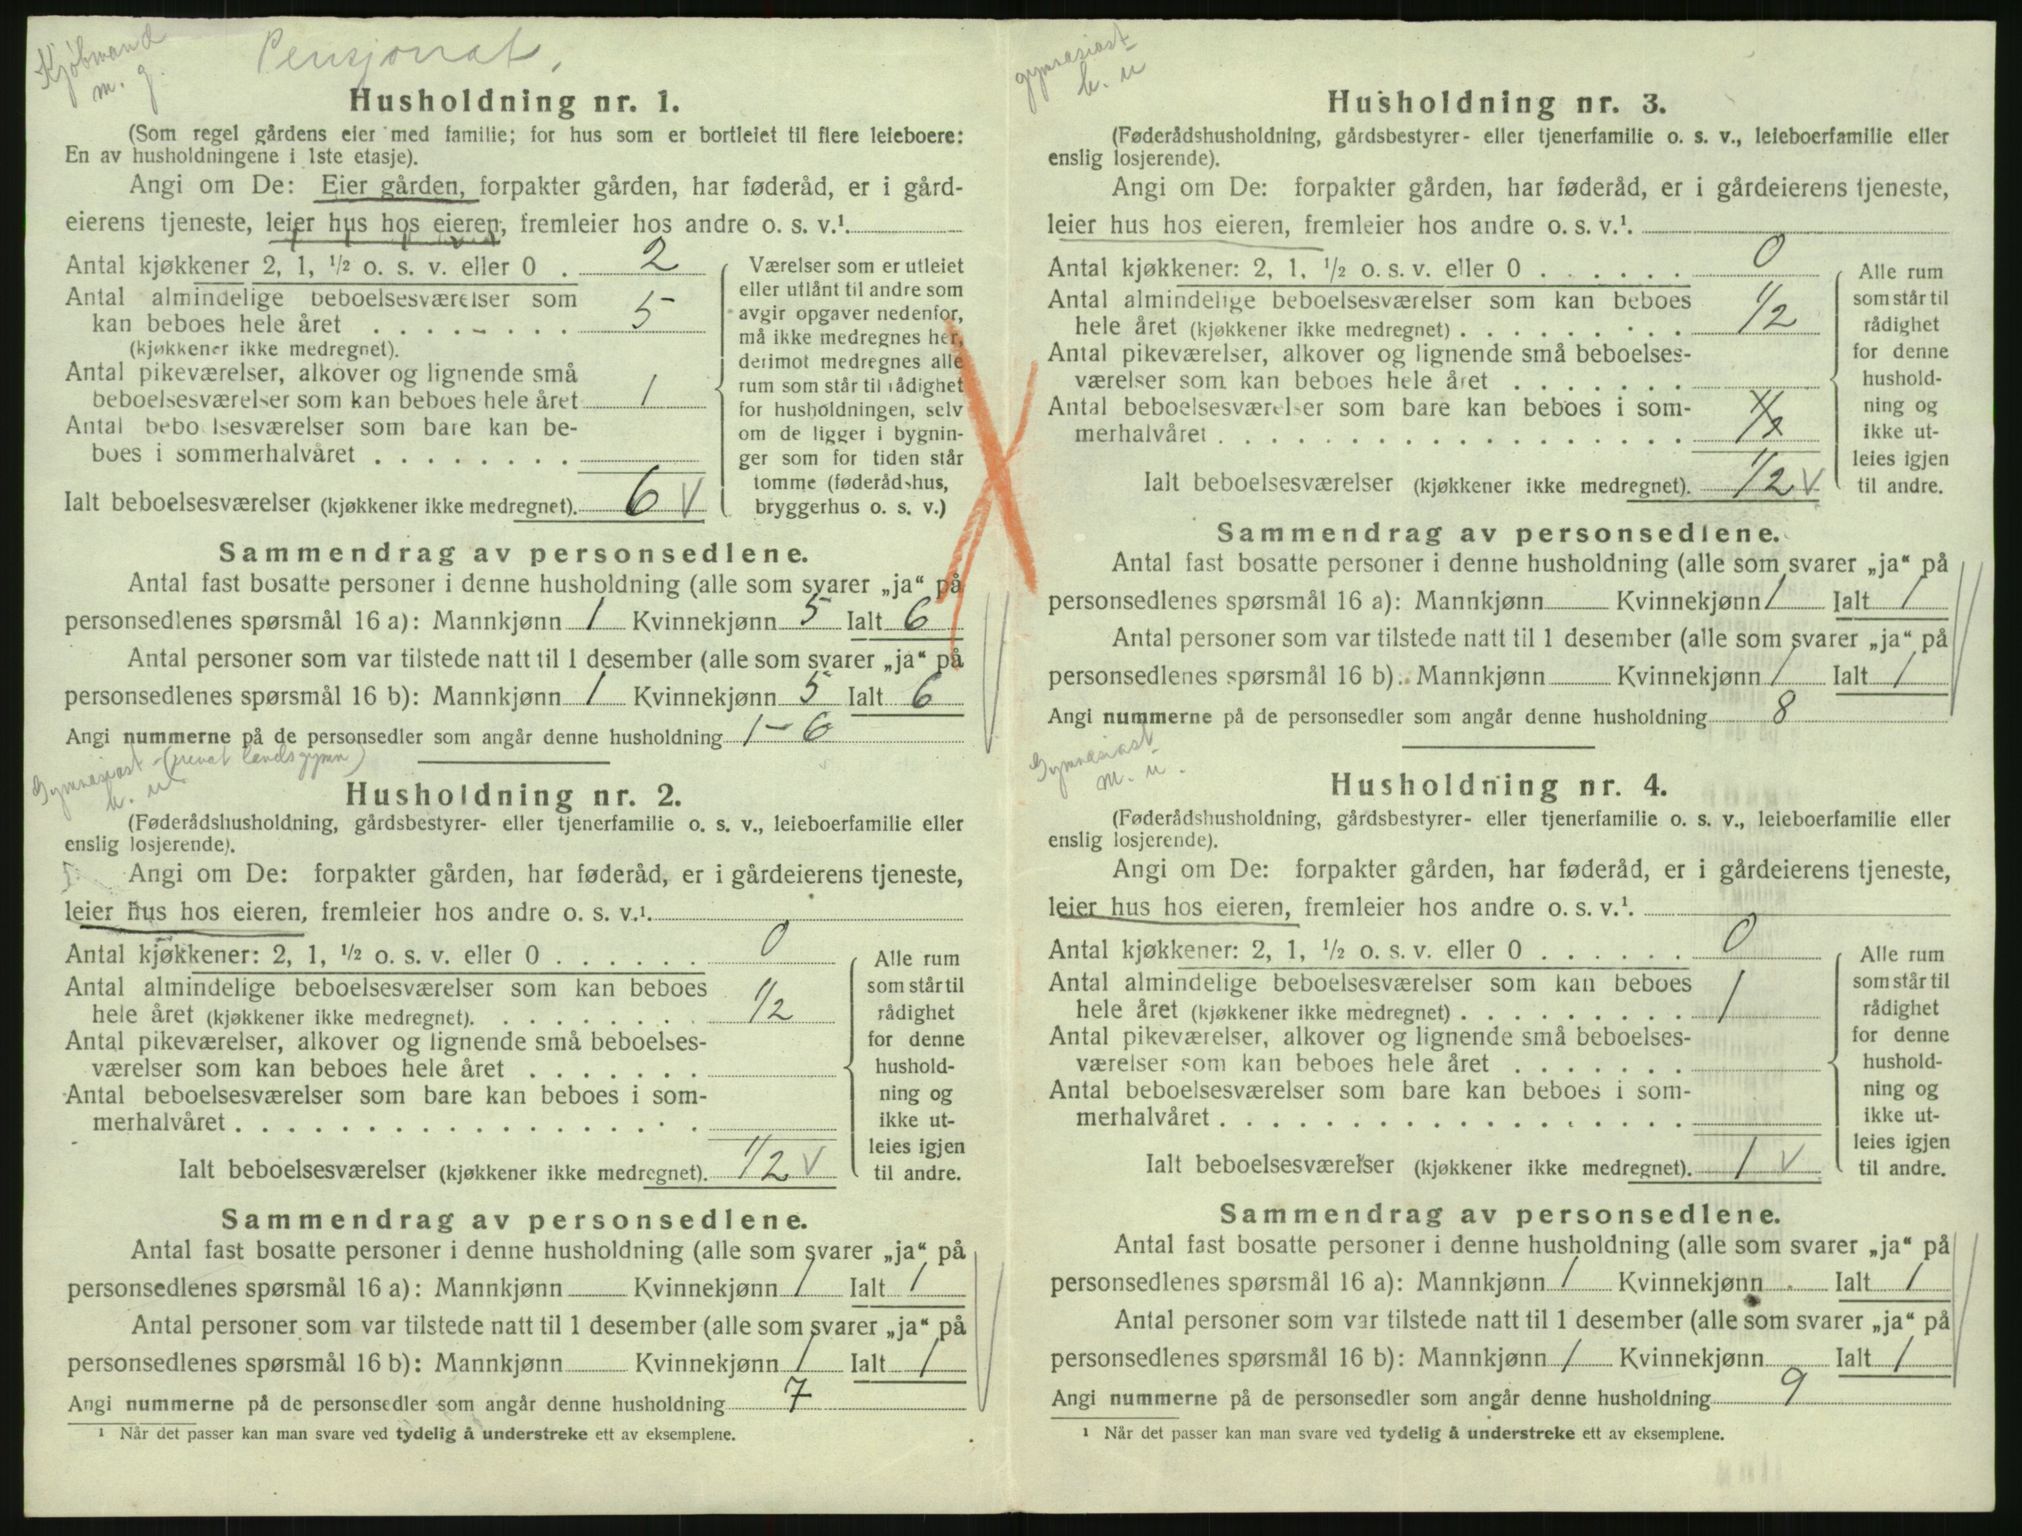 Kjøbmand
m. g.
Pensjonat.
Husholdning nr. 1.
(Som regel gårdens eier med familie; for hus som er bortleiet til flere leieboere:
En av husholdningene i 1ste etasje).
Angi om De: Eier gården, forpakter gården, har føderåd, er i gård-
eierens tjeneste, leier hus hos eieren, fremleier hos andre o. s. v.¹
Antal kjøkkener 2, 1, ½ o. s. v. eller 0 . 2
Antal almindelige beboelsesværelser som
kan beboes hele året . . . . . . . . 5
(kjøkkener ikke medregnet).
Antal pikeværelser, alkover og lignende små
beboelsesværelser som kan beboes hele året 1
Antal beboelsesværelser som bare kan be-
boes i sommerhalvåret . . . . . . . .
Ialt beboelsesværelser (kjøkkener ikke medregnet). 6 V
Værelser som er utleiet
eller utlånt til andre som
avgir opgaver nedenfor,
må ikke medregnes her,
derimot medregnes alle
rum som står til rådighet
for husholdningen, selv
om de ligger i bygnin-
ger som for tiden står
tomme (føderådshus,
bryggerhus o. s. v.)
Sammendrag av personsedlene.
Antal fast bosatte personer i denne husholdning (alle som svarer „ja“ på
personsedlenes spørsmål 16 a): Mannkjønn 1 Kvinnekjønn 5 Ialt 6
Antal personer som var tilstede natt til 1 desember (alle som svarer „ja“ på
personsedlenes spørsmål 16 b): Mannkjønn 1 Kvinnekjønn 5 Ialt 6
Angi nummerne på de personsedler som angår denne husholdning 1 – 6
Gymnasiast (privat landsgymn)
k. u
Husholdning nr. 2.
(Føderådshusholdning, gårdsbestyrer- eller tjenerfamilie o. s. v., leieboerfamilie eller
enslig losjerende).
Angi om De: forpakter gården, har føderåd, er i gårdeierens tjeneste,
leier hus hos eieren, fremleier hos andre o. s. v.¹
Antal kjøkkener: 2, 1, ½ o. s. v. eller 0 . . . . . . 0
Antal almindelige beboelsesværelser som kan beboes
hele året (kjøkkener ikke medregnet). . . . . . . . . 1/2
Antal pikeværelser, alkover og lignende små beboelses-
værelser som kan beboes hele året . . . . . . .
Antal beboelsesværelser som bare kan beboes i som-
merhalvåret . . . . . . . . . . . . . . . . . .
Ialt beboelsesværelser (kjøkkener ikke medregnet). 1/2 V
Alle rum
som står til
rådighet
for denne
hushold-
ning og
ikke ut-
leies igjen
til andre.
Sammendrag av personsedlene.
Antal fast bosatte personer i denne husholdning (alle som svarer „ja“ på
personsedlenes spørsmål 16 a): Mannkjønn Kvinnekjønn 1 Ialt 1
Antal personer som var tilstede natt til 1 desember (alle som svarer „ja“ på
personsedlenes spørsmål 16 b): Mannkjønn Kvinnekjønn 1 Ialt 1
Angi nummerne på de personsedler som angår denne husholdning 7
¹ Når det passer kan man svare ved tydelig å understreke ett av eksemplene.
gymnasiast
k. u
Husholdning nr. 3.
(Føderådshusholdning, gårdsbestyrer- eller tjenerfamilie o. s. v., leieboerfamilie eller
enslig losjerende).
Angi om De: forpakter gården, har føderåd, er i gårdeierens tjeneste,
leier hus hos eieren, fremleier hos andre o. s. v.¹
Antal kjøkkener: 2, 1, ½ o. s. v. eller 0 . . . . . . 0
Antal almindelige beboelsesværelser som kan beboes
hele året (kjøkkener ikke medregnet) . . . . . . . . . 1/2
Antal pikeværelser, alkover og lignende små beboelses-
værelser som kan beboes hele året . . . . . . .
Antal beboelsesværelser som bare kan beboes i som-
merhalvåret . . . . . . . . . . . . . . . . . . 1/2
Ialt beboelsesværelser (kjøkkener ikke medregnet). 1/2 V
Alle rum
som står til
rådighet
for denne
hushold-
ning og
ikke ut-
leies igjen
til andre.
Sammendrag av personsedlene.
Antal fast bosatte personer i denne husholdning (alle som svarer „ja“ på
personsedlenes spørsmål 16 a): Mannkjønn Kvinnekjønn 1 Ialt 1
Antal personer som var tilstede natt til 1 desember (alle som svarer „ja“ på
personsedlenes spørsmål 16 b). Mannkjønn Kvinnekjønn 1 Ialt 1
Angi nummerne på de personsedler som angår denne husholdning 8
Gymnasiast
m. u.
Husholdning nr. 4.
(Føderådshusholdning, gårdsbestyrer- eller tjenerfamilie o. s. v., leieboerfamilie eller
enslig losjerende).
Angi om De: forpakter gården, har føderåd, er i gårdeierens tjeneste,
leier hus hos eieren, fremleier hos andre o. s. v.¹
Antal kjøkkener: 2, 1, ½ o. s. v. eller 0 . . . . . . 0
Antal almindelige beboelsesværelser som kan beboes
hele året (kjøkkener ikke medregnet) . . . . . . . . . 1
Antal pikeværelser, alkover og lignende små beboelses-
værelser som kan beboes hele året . . . . . . .
Antal beboelsesværelser som bare kan beboes i som-
merhalvåret . . . . . . . . . . . . . . . . . .
Ialt beboelsesværelser (kjøkkener ikke medregnet). 1 V
Alle rum
som står til
rådighet
for denne
hushold-
ning og
ikke ut-
leies igjen
til andre.
Sammendrag av personsedlene.
Antal fast bosatte personer i denne husholdning (alle som svarer „ja“ på
personsedlenes spørsmål 16 a): Mannkjønn 1 Kvinnekjønn Ialt 1
Antal personer som var tilstede natt til 1 desember (alle som svarer „ja“ på
personsedlenes spørsmål 16 b): Mannkjønn 1 Kvinnekjønn Ialt 1
Angi nummerne på de personsedler som angår denne husholdning 9
¹ Når det passer kan man svare ved tydelig å understreke ett av eksemplene.